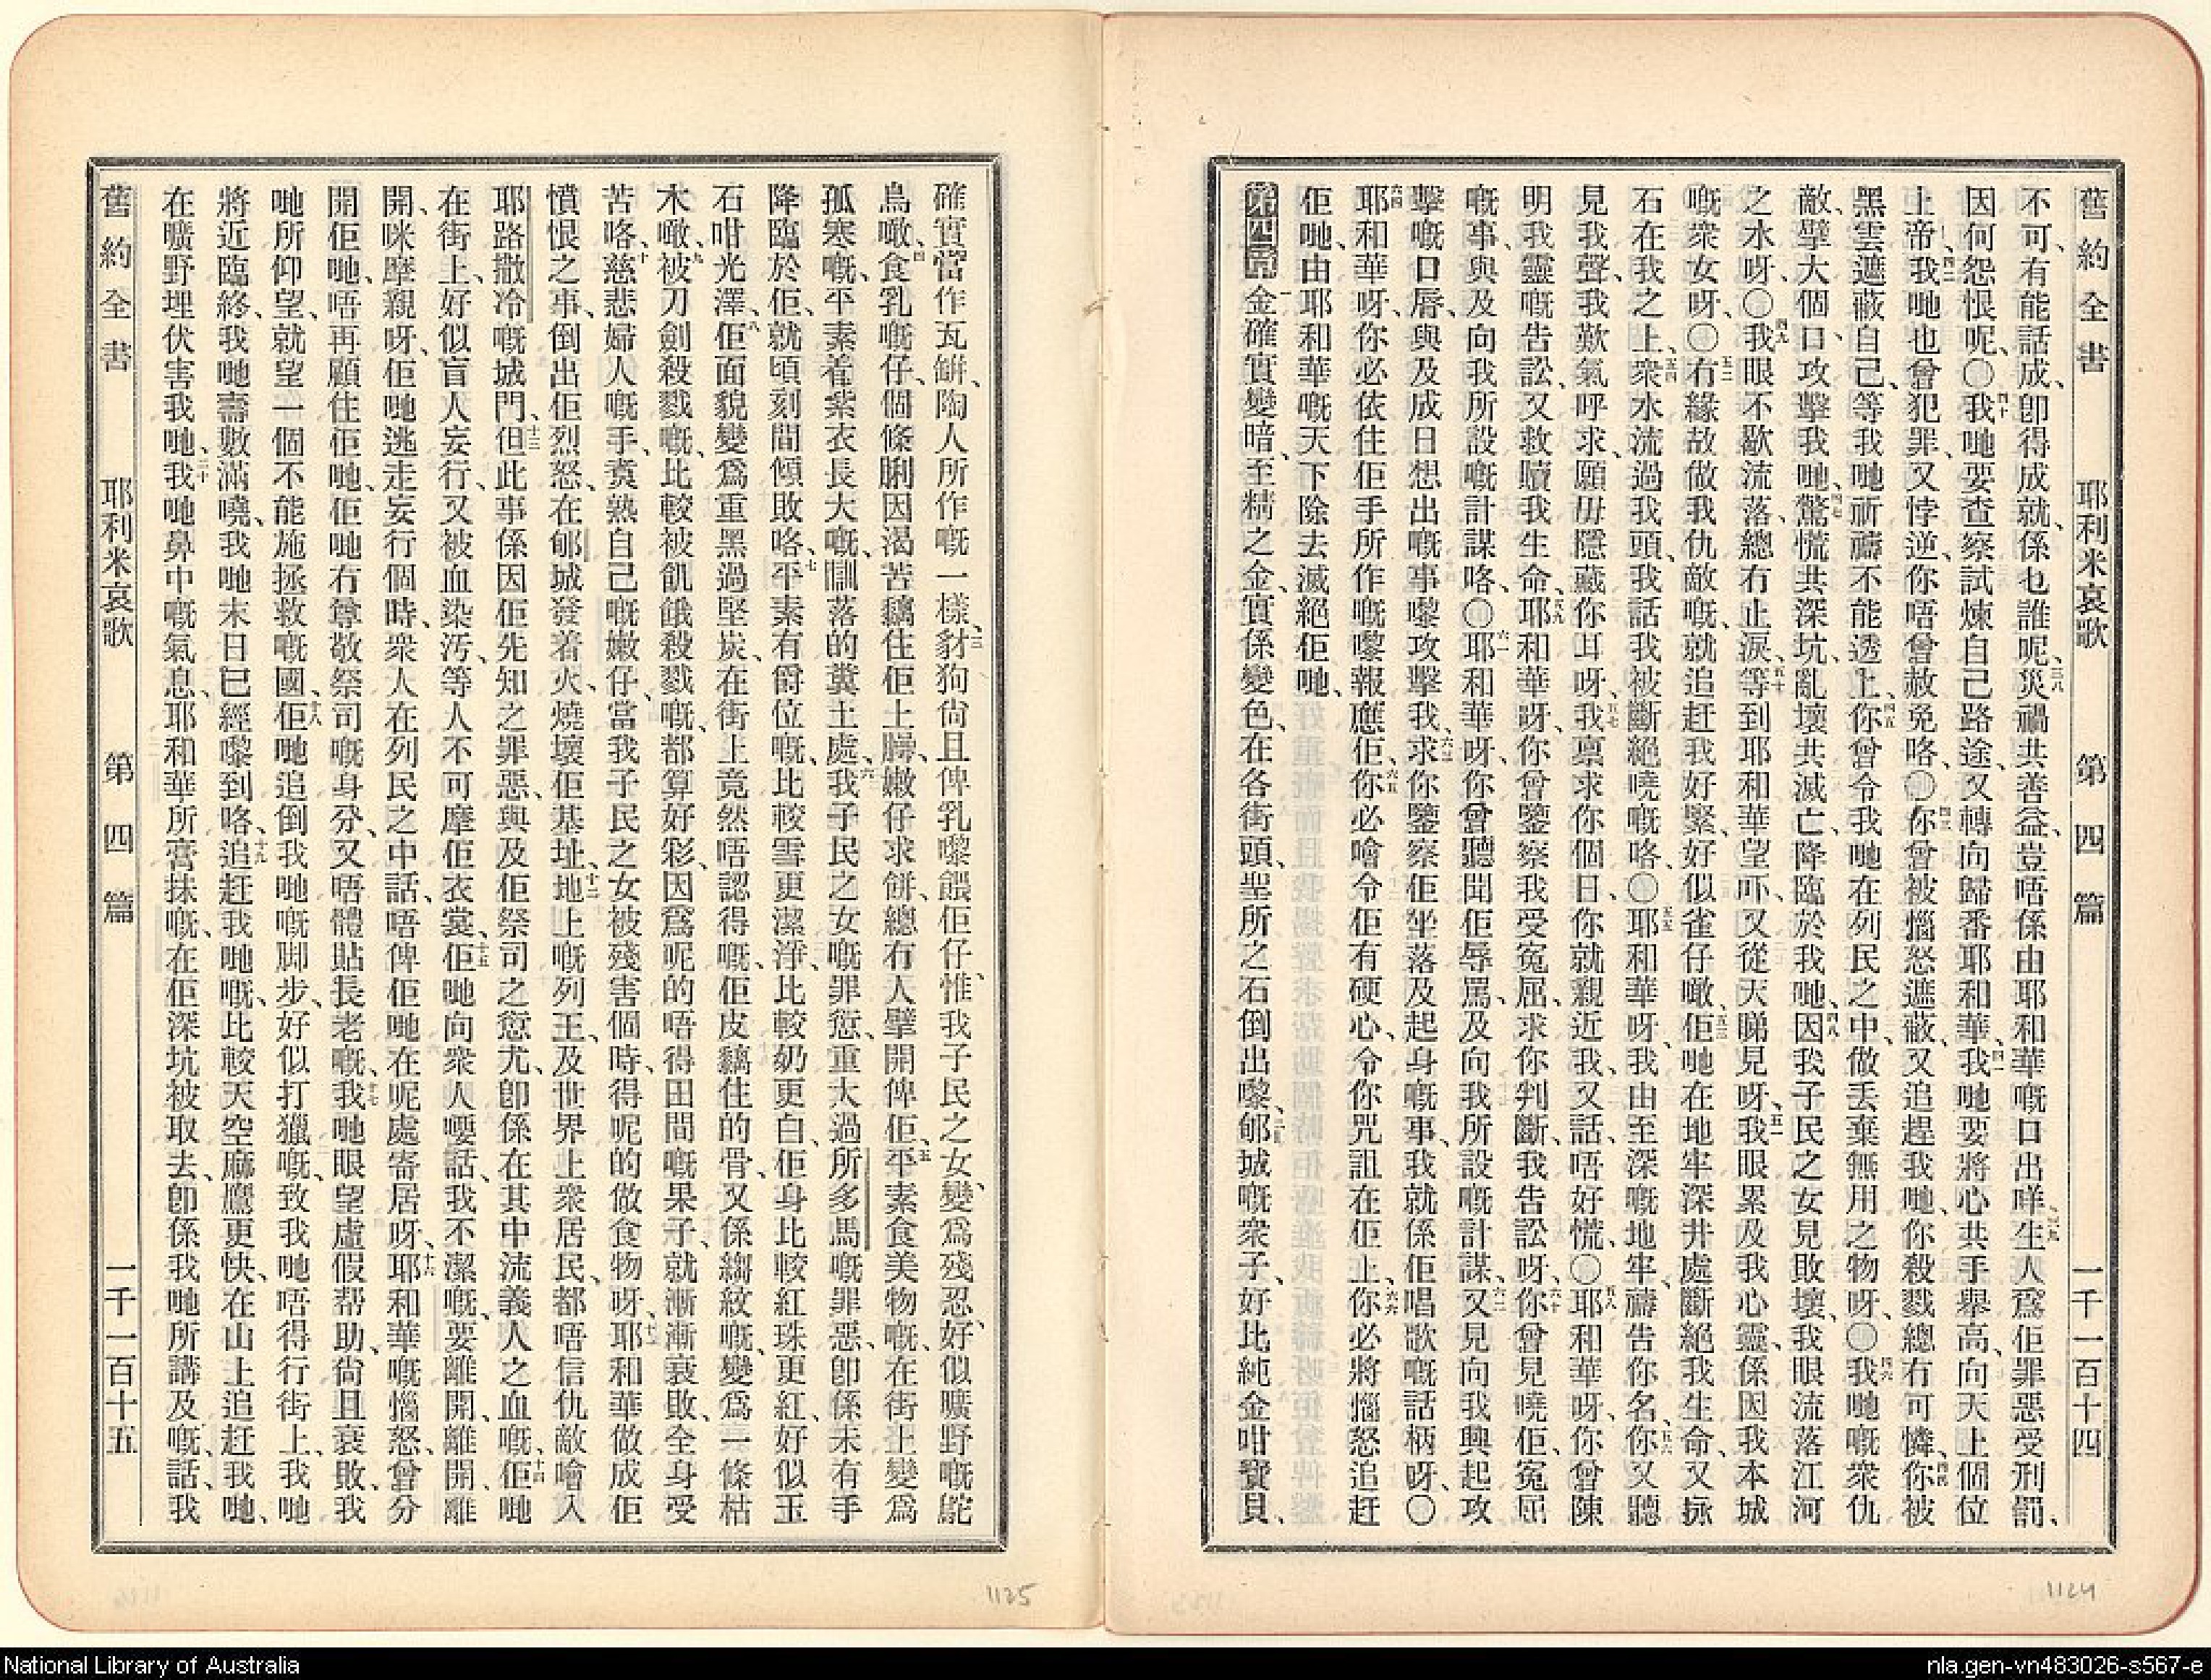 舊約全書 耶利米哀歌 第四篇 一千一百十四
不可、有能話成、卽得成就、係乜誰呢、三八災禍共善益、豈唔係由耶和華嘅口出咩、三九生人爲佢罪惡受刑罰、
因何怨恨呢、〇四十我哋要查察試煉自己路途、又轉向歸番耶和華、四一我哋要將心共手舉高、向天上個位
上帝、四二我哋也曾犯罪、又悖逆、你唔曾赦免咯、〇四三你曾被惱怒遮蔽、又追趕我哋、你殺戮總冇可憐、四四你被
黑雲遮蔽自己、等我哋祈禱不能透上、四五你曾令我哋在列民之中、做丟棄無用之物呀、〇四六我哋嘅衆仇
敵、擘大個口、攻擊我哋、四七驚慌共深坑、亂壞共滅亡、降臨於我哋、四八因我子民之女見敗壞、我眼流落江河
之水呀、〇四九我眼不歇流落、總冇止淚、五十等到耶和華望吓、又從天睇見呀、五一我眼累及我心靈、係因我本城
嘅衆女呀、〇五二有緣故做我仇敵嘅、就追赶我好緊、好似雀仔噉、五三佢哋在地牢深井處斷絕我生命、又抌
石在我之上、五四衆水流過我頭、我話我被斷絕嘵嘅咯、〇五五耶和華呀、我由至深嘅地牢、禱告你名、五六你又聽
見我聲、我歎氣呼求、願毋隱藏你耳呀、五七我稟求你個日、你就親近我、又話、唔好慌、〇五八耶和華呀、你曾陳
明我靈嘅告訟、又救贖我生命、五九耶和華呀、你曾鑒察我受冤屈、求你判斷我告訟呀、六十你曾見嘵佢寃屈
嘅事、與及向我所設嘅計謀咯、〇六一耶和華呀、你曾聽聞佢辱罵、及向我所設嘅計謀、六二又見向我興起攻
擊嘅口唇、與及成日想出嘅事嚟攻擊我、六三求你鑒察佢坐落及起身嘅事、我就係佢唱歌嘅話柄呀、〇
六四耶和華呀、你必依住佢手所作嘅嚟報應佢、六五你必噲令佢有硬心、令你咒詛在佢上、六六你必將惱怒追赶
佢哋、由耶和華嘅天下除去滅絕佢哋、
第四篇 一金確實變暗、至精之金、實係變色、在各街頭、聖所之石倒出嚟、二郇城嘅衆子、好比純金咁寶貝、
確實當作瓦缾、陶人所作嘅一樣、三豺狗尙且俾乳嚟餵佢仔、惟我子民之女、變爲殘忍、好似曠野嘅鴕
鳥噉、四食乳嘅仔、個條脷因渴苦黐住佢上腭、嫩仔求餅、總冇人擘開俾佢、五平素食美物嘅、在街上變爲
孤寒嘅、平素着紫衣長大嘅、瞓落的糞土處、六我子民之女嘅罪愆、重大過所多馬嘅罪惡、卽係未有手
降臨於佢、就頃刻間傾敗咯、七平素有爵位嘅、比較雪更潔淨、比較奶更白、佢身比較紅珠更紅、好似玉
石咁光澤、八佢面貌變爲重黑過堅炭、在街上竟然唔認得嘅、佢皮黐住的骨、又係縐紋嘅、變爲一條枯
木噉、九被刀劍殺戮嘅、比較被飢餓殺戮嘅、都算好彩、因爲呢的唔得田間嘅果子、就漸漸衰敗、全身受
苦咯、十慈悲婦人嘅手、煑熟自己嘅嫩仔、當我子民之女被殘害個時、得呢的做食物呀、十一耶和華做成佢
憤恨之事、倒出佢烈怒、在郇城發着火、燒壞佢基址、十二地上嘅列王、及世界上衆居民、都唔信仇敵噲入
耶路撒冷嘅城門、十三但此事係因佢先知之罪惡、與及佢祭司之愆尤、卽係在其中流義人之血嘅、十四佢哋
在街上、好似盲人妄行、又被血染汚、等人不可摩佢衣裳、十五佢哋向衆人嗌話、我不潔嘅、要離開、離開離
開、咪摩親呀、佢哋逃走妄行個時、衆人在列民之中話、唔俾佢哋在呢處寄居呀、十六耶和華嘅惱怒、曾分
開佢哋、唔再顧住佢哋、佢哋冇尊敬祭司嘅身分、又唔體貼長老嘅、十七我哋眼望虛假帮助、尙且衰敗、我
哋所仰望、就望一個不能施拯救嘅國、十八佢哋追倒我哋嘅脚步、好似打獵嘅、致我哋唔得行街上、我哋
將近臨終、我哋壽數滿嘵、我哋末日已經嚟到咯、十九追赶我哋嘅、比較天空麻鷹更快、在山上追赶我哋、
在曠野埋伏害我哋、二十我哋鼻中嘅氣息、耶和華所膏抹嘅、在佢深坑被取去、卽係我哋所講及嘅、話、我
舊約全書 耶利米哀歌 第四篇 一千一百十五
1125
1124
National Library of Australia
nla.gen-vn483026-s567-e